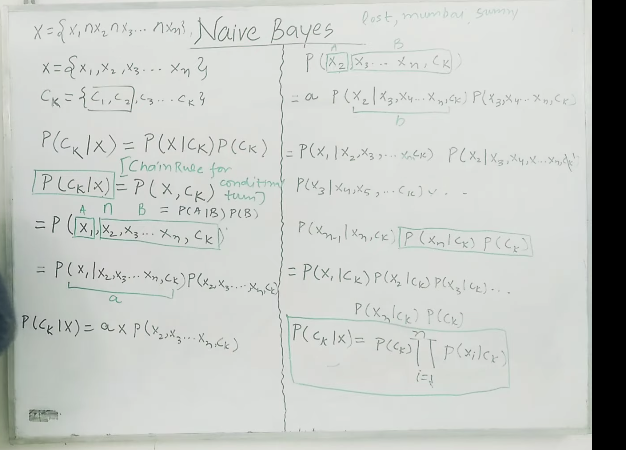 X={x₁ ∩x₂ ∩x₃... ∩xₙ}, Naive Bayes
X={x₁,x₂,x₃...xₙ}
Cₖ={C₁,C₂,C₃...Cₖ}
P(Cₖ|X) = P(X|Cₖ)P(Cₖ)
[Chain Rule for
P(Cₖ|X) = P(X,Cₖ) condition
A ∩ B = P(A|B) P(B)
= P(x₁,x₂,x₃...xₙ,Cₖ)
= P(x₁|x₂,x₃...xₙ,Cₖ)P(x₂,x₃...xₙ,Cₖ)
a
P(Cₖ|X) = a x P(x₂,x₃...xₙ,Cₖ)
Post, mumbai, sunny
A B
P(x₂,x₃...xₙ,Cₖ)
= a P(x₂|x₃,x₄...xₙ,Cₖ)P(x₃,x₄...xₙ,Cₖ)
b
= P(x₁|x₂,x₃,...xₙCₖ) P(x₂|x₃,x₄,...xₙ,Cₖ)
P(x₃|x₄,x₅,...Cₖ) ...
P(xₙ₋₁|xₙ,Cₖ) P(xₙ|Cₖ) P(Cₖ)
= P(x₁|Cₖ)P(x₂|Cₖ)P(x₃|Cₖ)...
P(xₙ|Cₖ) P(Cₖ)
P(Cₖ|X) = P(Cₖ) ∏ⁿᵢ₌₁ P(xᵢ|Cₖ)